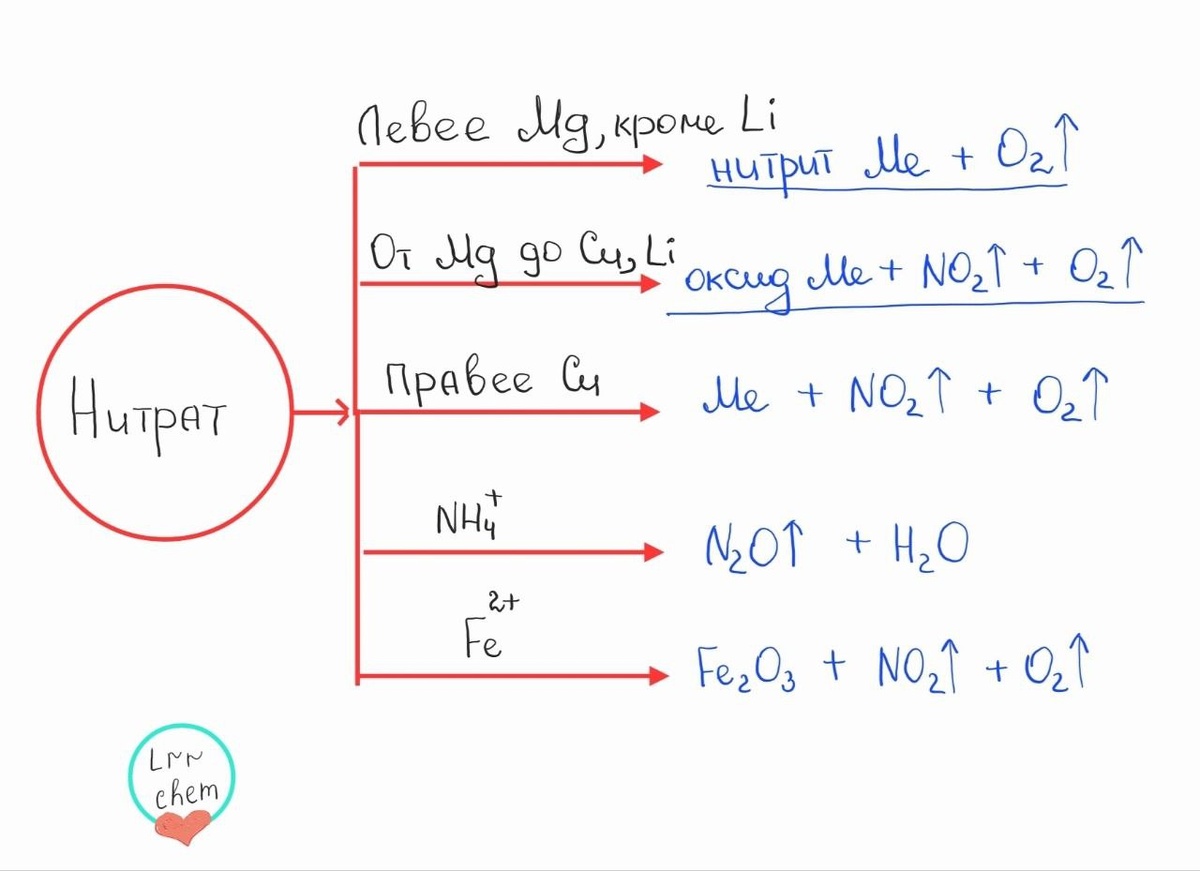 Левее Mg, кроме Li
нитрит Me + O₂↑
От Mg до Cu, Li
оксид Me + NO₂↑ + O₂↑
Нитрат
Правее Cu
Me + NO₂↑ + O₂↑
NH₄⁺
N₂O↑ + H₂O
Fe²⁺
Fe₂O₃ + NO₂↑ + O₂↑
chem